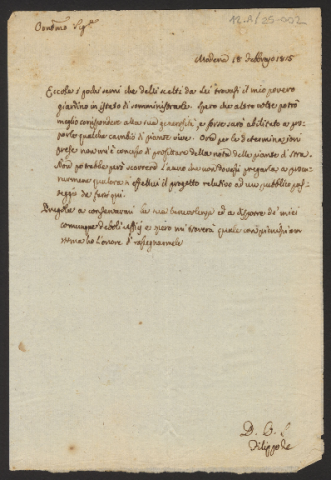 12.A/25-002
Modena 18 Febbrajo 1815
Eccole i pochi semi che delli scelti da lei trovasi il mio povero
giardino in istato di somministrarle. Spero che altre volte potrò
meglio corrispondere alla sua generosità, e forse sarò abilitato a pro
porle qualche cambio di piante vive. Ora per le determinazioni
prese non mi è concesso di profittare della nota delle piante di Stra.
Non potrebbe però occorrere il caso che dovessi pregarla a procu
rarmene qualora si effettui il progetto relativo ad un pubblico pas
seggio da farsi qui.
a conservarmi la sua benevolenza ed a disporre de' miei
comunque deboli uffizj e spero mi troverà quale
stima ho l'onore di rassegnarmele
D. B. S.